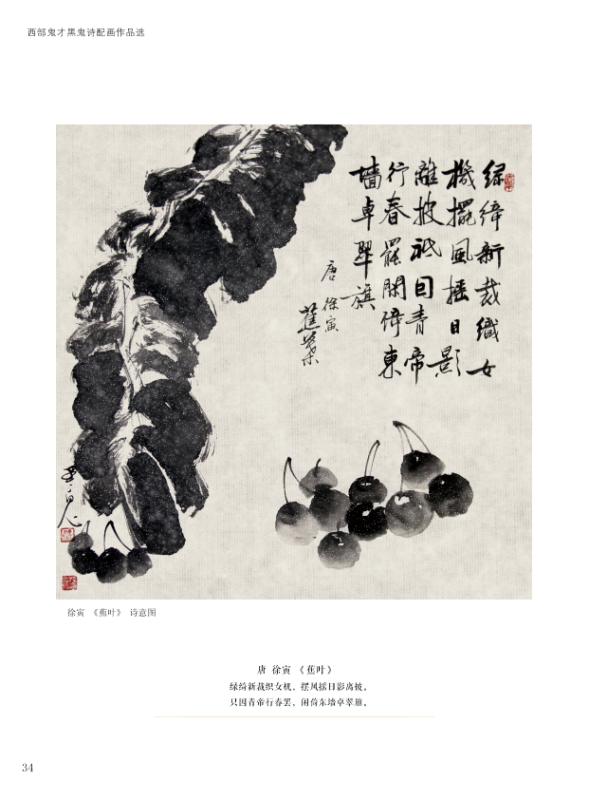 西部鬼才黑鬼诗配画作品选
绿綺新裁織女
機擺風摇日影
離披祇因青帝
行春罷閒倚東
墻卓翠旗
唐 徐寅
蕉葉
黑鬼
徐寅 《蕉叶》 诗意图
唐 徐寅 《蕉叶》
绿绮新裁织女机，摆风摇日影离披。
只因青帝行春罢，闲倚东墙卓翠旗。
34